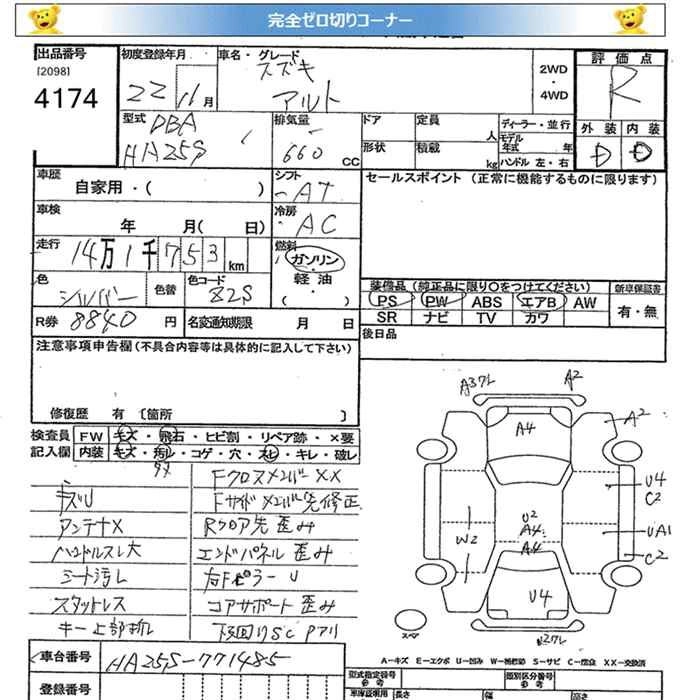 完全ゼロ切りコーナー
出品番号
[2098]
4174
初度登録年月
22 11月
車名・グレード
スズキ
アルト
2WD
・
4WD
評価点
R
外装 内装
D D
型式
DBA
HA25S
排気量
660 CC
ドア
定員 人
ディーラー・並行
モデル年式 年
形状
積載 kg
ハンドル 左・右
車歴
自家用・( )
シフト
AT
セールスポイント (正常に機能するものに限ります)
車検
年 月( 日)
冷房
AC
走行
14万1千753km
燃料
ガソリン
・
軽油
( )
色
シルバー
色替
色コード
Z2S
装備品 (純正品に限り○をつけてください)
新車保証書
PS PW ABS エアB AW
有・無
SR ナビ TV カワ
R券 8840円
名変通知期限 月 日
後日品
注意事項申告欄(不具合内容等は具体的に記入して下さい)
修復歴 有 [箇所 ]
検査員
記入欄
FW キズ・飛石・ヒビ割・リペア跡・×要
内装 キズ・汚レ・コゲ・穴・スレ・キレ・破レ
Fクロスメンバー XX
キズU
Fサイドメンバー先修正
アンテナX
Rフロア先歪み
ハンドルスレ大
エンドパネル歪み
シート汚レ
右Fピラー U
スタットレス
コアサポート歪み
キー上部折レ
下回りSC Pアリ
A3ワレ
A2
A4
A2
U4
C2
U2
A4
A4
W2
UA1
C2
U4
スペア
U3ワレ
A-キズ E-エクボ U-凹み W-補修跡 S-サビ C-腐食 XX-交換済
車台番号
HA25S-771485
登録番号
型式指定番号
参考
類別区分番号
参考
車庫証明用
長さ
幅
高さ